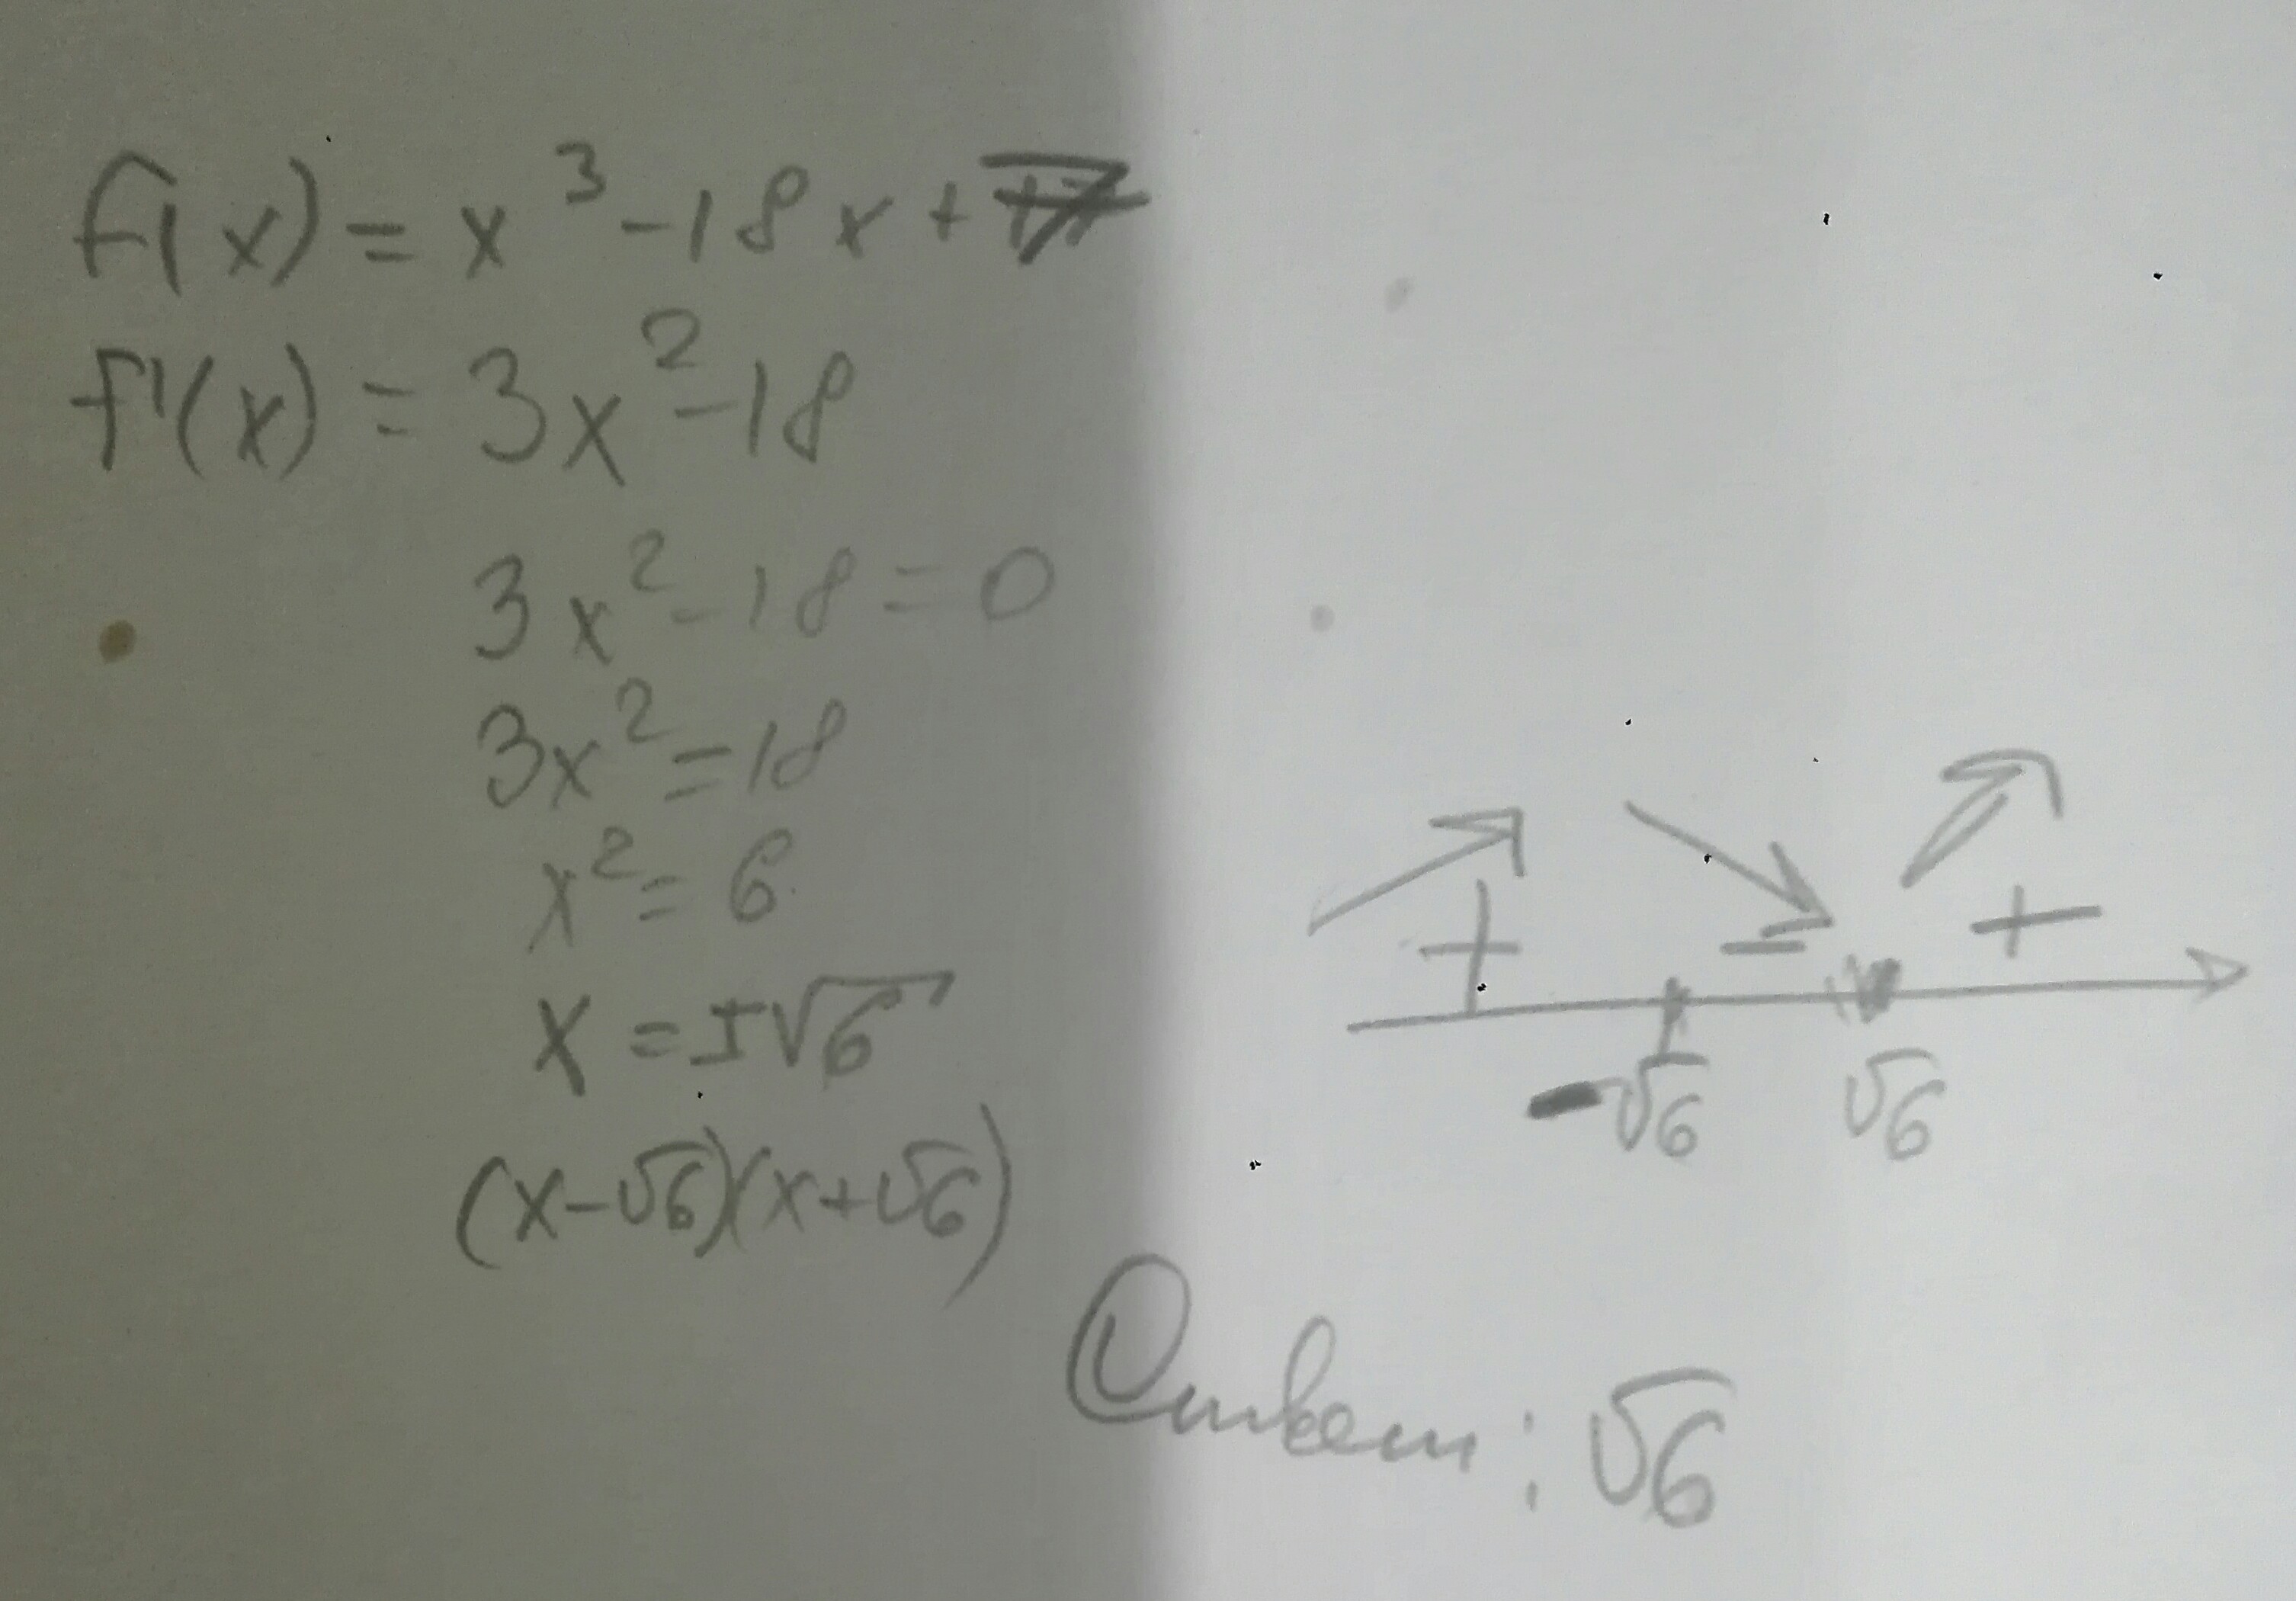 f(x) = x³ - 18x +
f'(x) = 3x² - 18
3x² - 18 = 0
3x² = 18
x² = 6
x = ±√6
(x-√6)(x+√6)
+ - +
-√6 √6
Ответ: √6